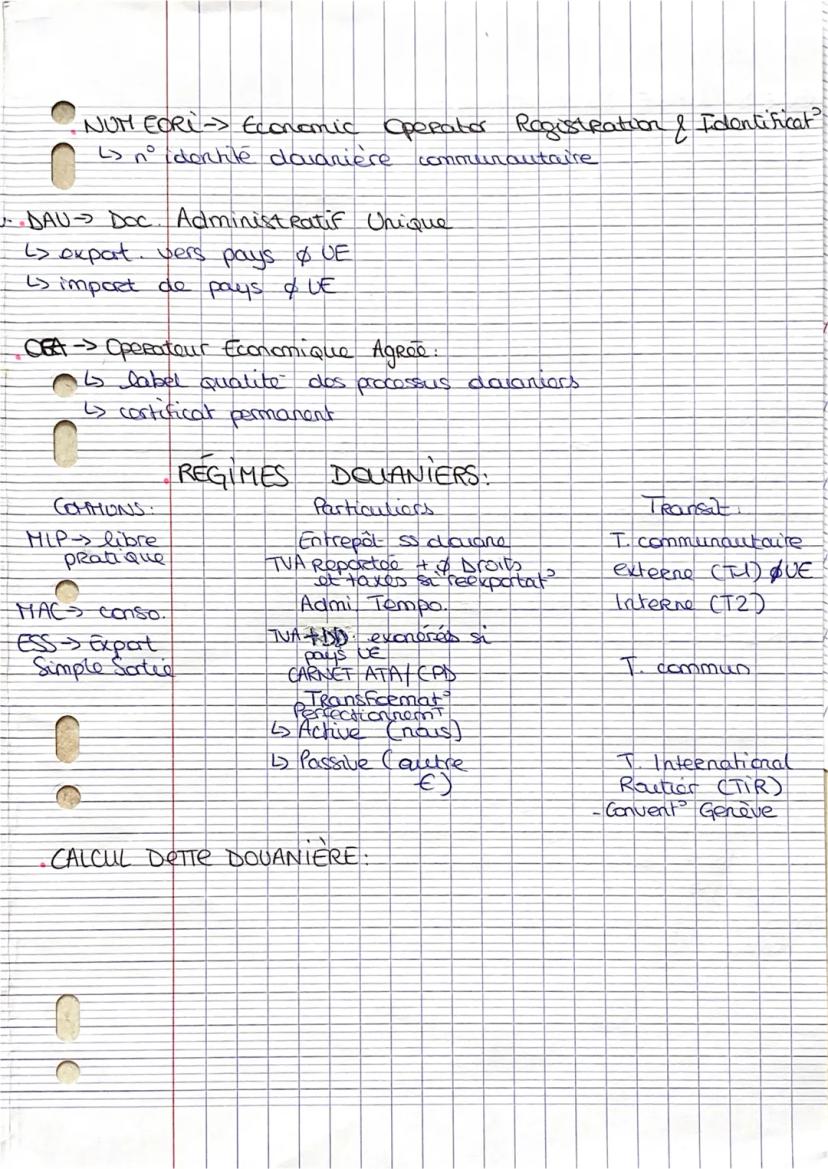 . NUM EORI -> Economic Operator Registration & Identificat°
↳ n° identité douanière communautaire
. DAU -> Doc. Administratif Unique
↳ export. vers pays ∅ UE
↳ import de pays ∅ UE
. OEA -> Operateur Economique Agréé :
↳ label qualité des processus douaniers
↳ certificat permanent
. RÉGIMES DOUANIERS :
COMMUNS :
MLP -> libre
pratique
MAC -> conso.
ESS -> Export
Simple Sortie
Particuliers
Entrepôt ss douane
TVA Reportée + ∅ Droits
et taxes si réexportat°
Admi. Tempo.
TVA + DD exonérés si
pays UE
CARNET ATA / CPD
Transformat°
Perfectionnemt
↳ Active (nous)
↳ Passive (autre
€)
Transit :
T. communautaire
externe (T1) ∅ UE
Interne (T2)
T. commun
T. International
Routier (TIR)
- Convent° Genève
. CALCUL DETTE DOUANIÈRE :